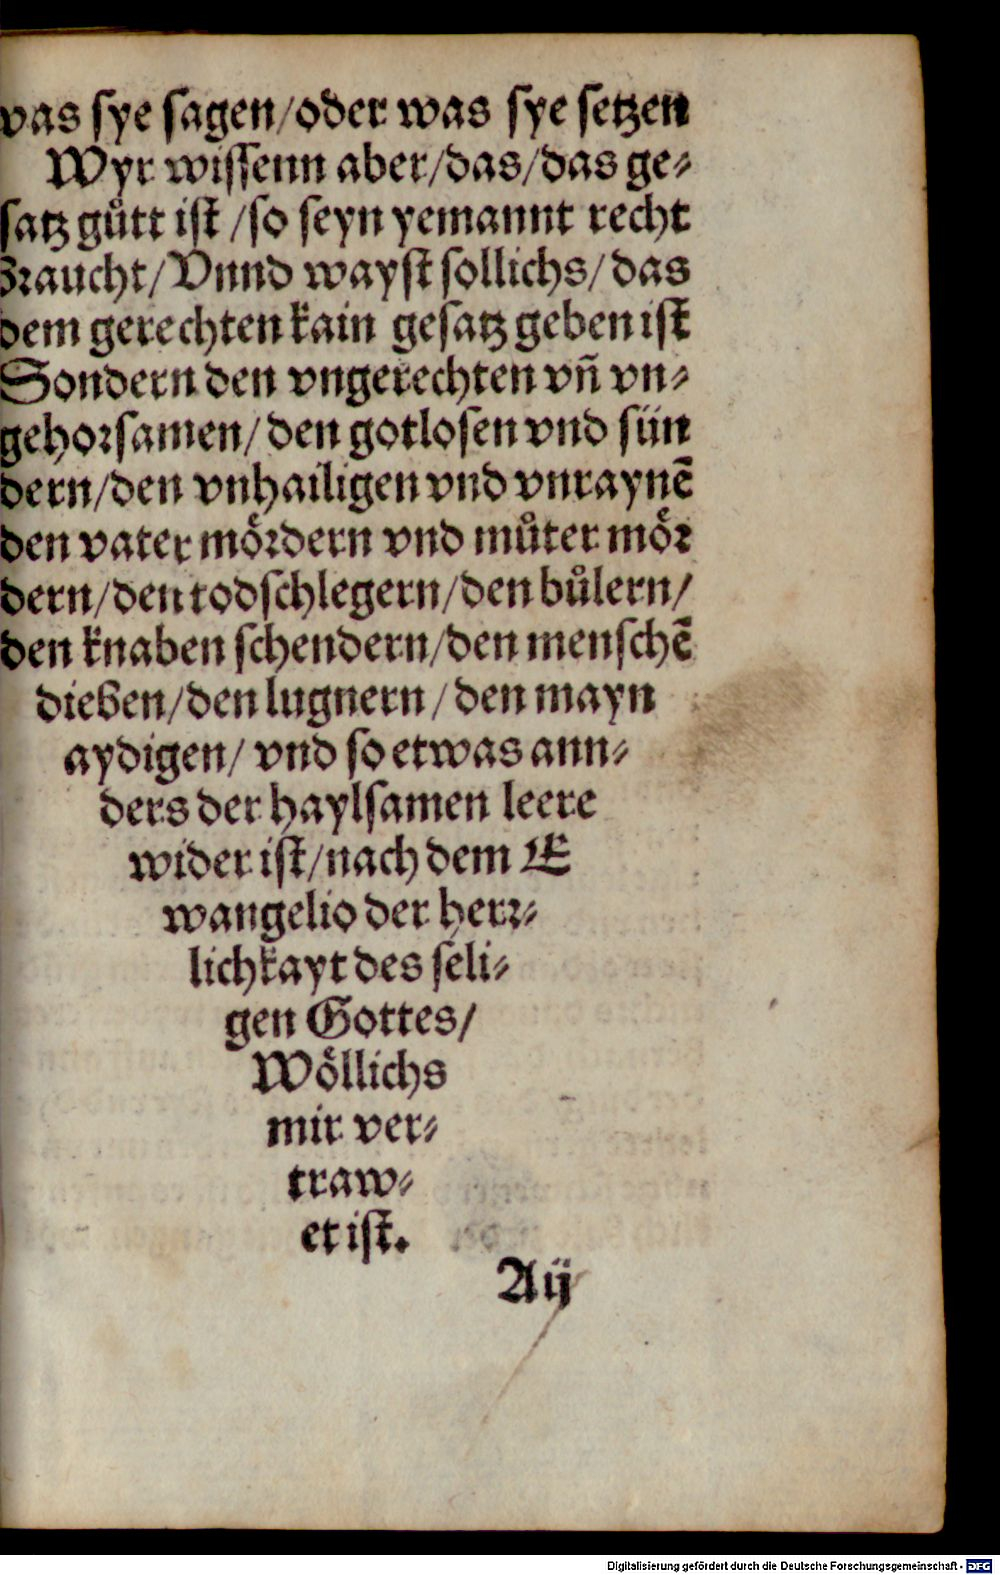 was sye sagen/oder was sye setzen
Wyr wissenn aber/das/das ge⸗
satz guͤtt ist /so seyn yemannt recht
braucht/Vnnd wayst sollichs/das
dem gerechten kain gesatz geben ist
Sondern den vngerechten vñ vn⸗
gehorsamen/den gotlosen vnd sün
dern/den vnhailigen vnd vnraynẽ
den vater moͤrdern vnd muͦter moͤr
dern/den todschlegern/den buͦlern/
den knaben schendern/den menschẽ
dieben/den lugnern/den mayn
aydigen/ vnd so etwas ann⸗
ders der haylsamen leere
wider ist/nach dem E
wangelio der herr⸗
lichkayt des seli⸗
gen Gottes/
Woͤllichs
mir ver⸗
traw⸗
et ist.
A ij
Digitalisierung gefördert durch die Deutsche Forschungsgemeinschaft - DFG